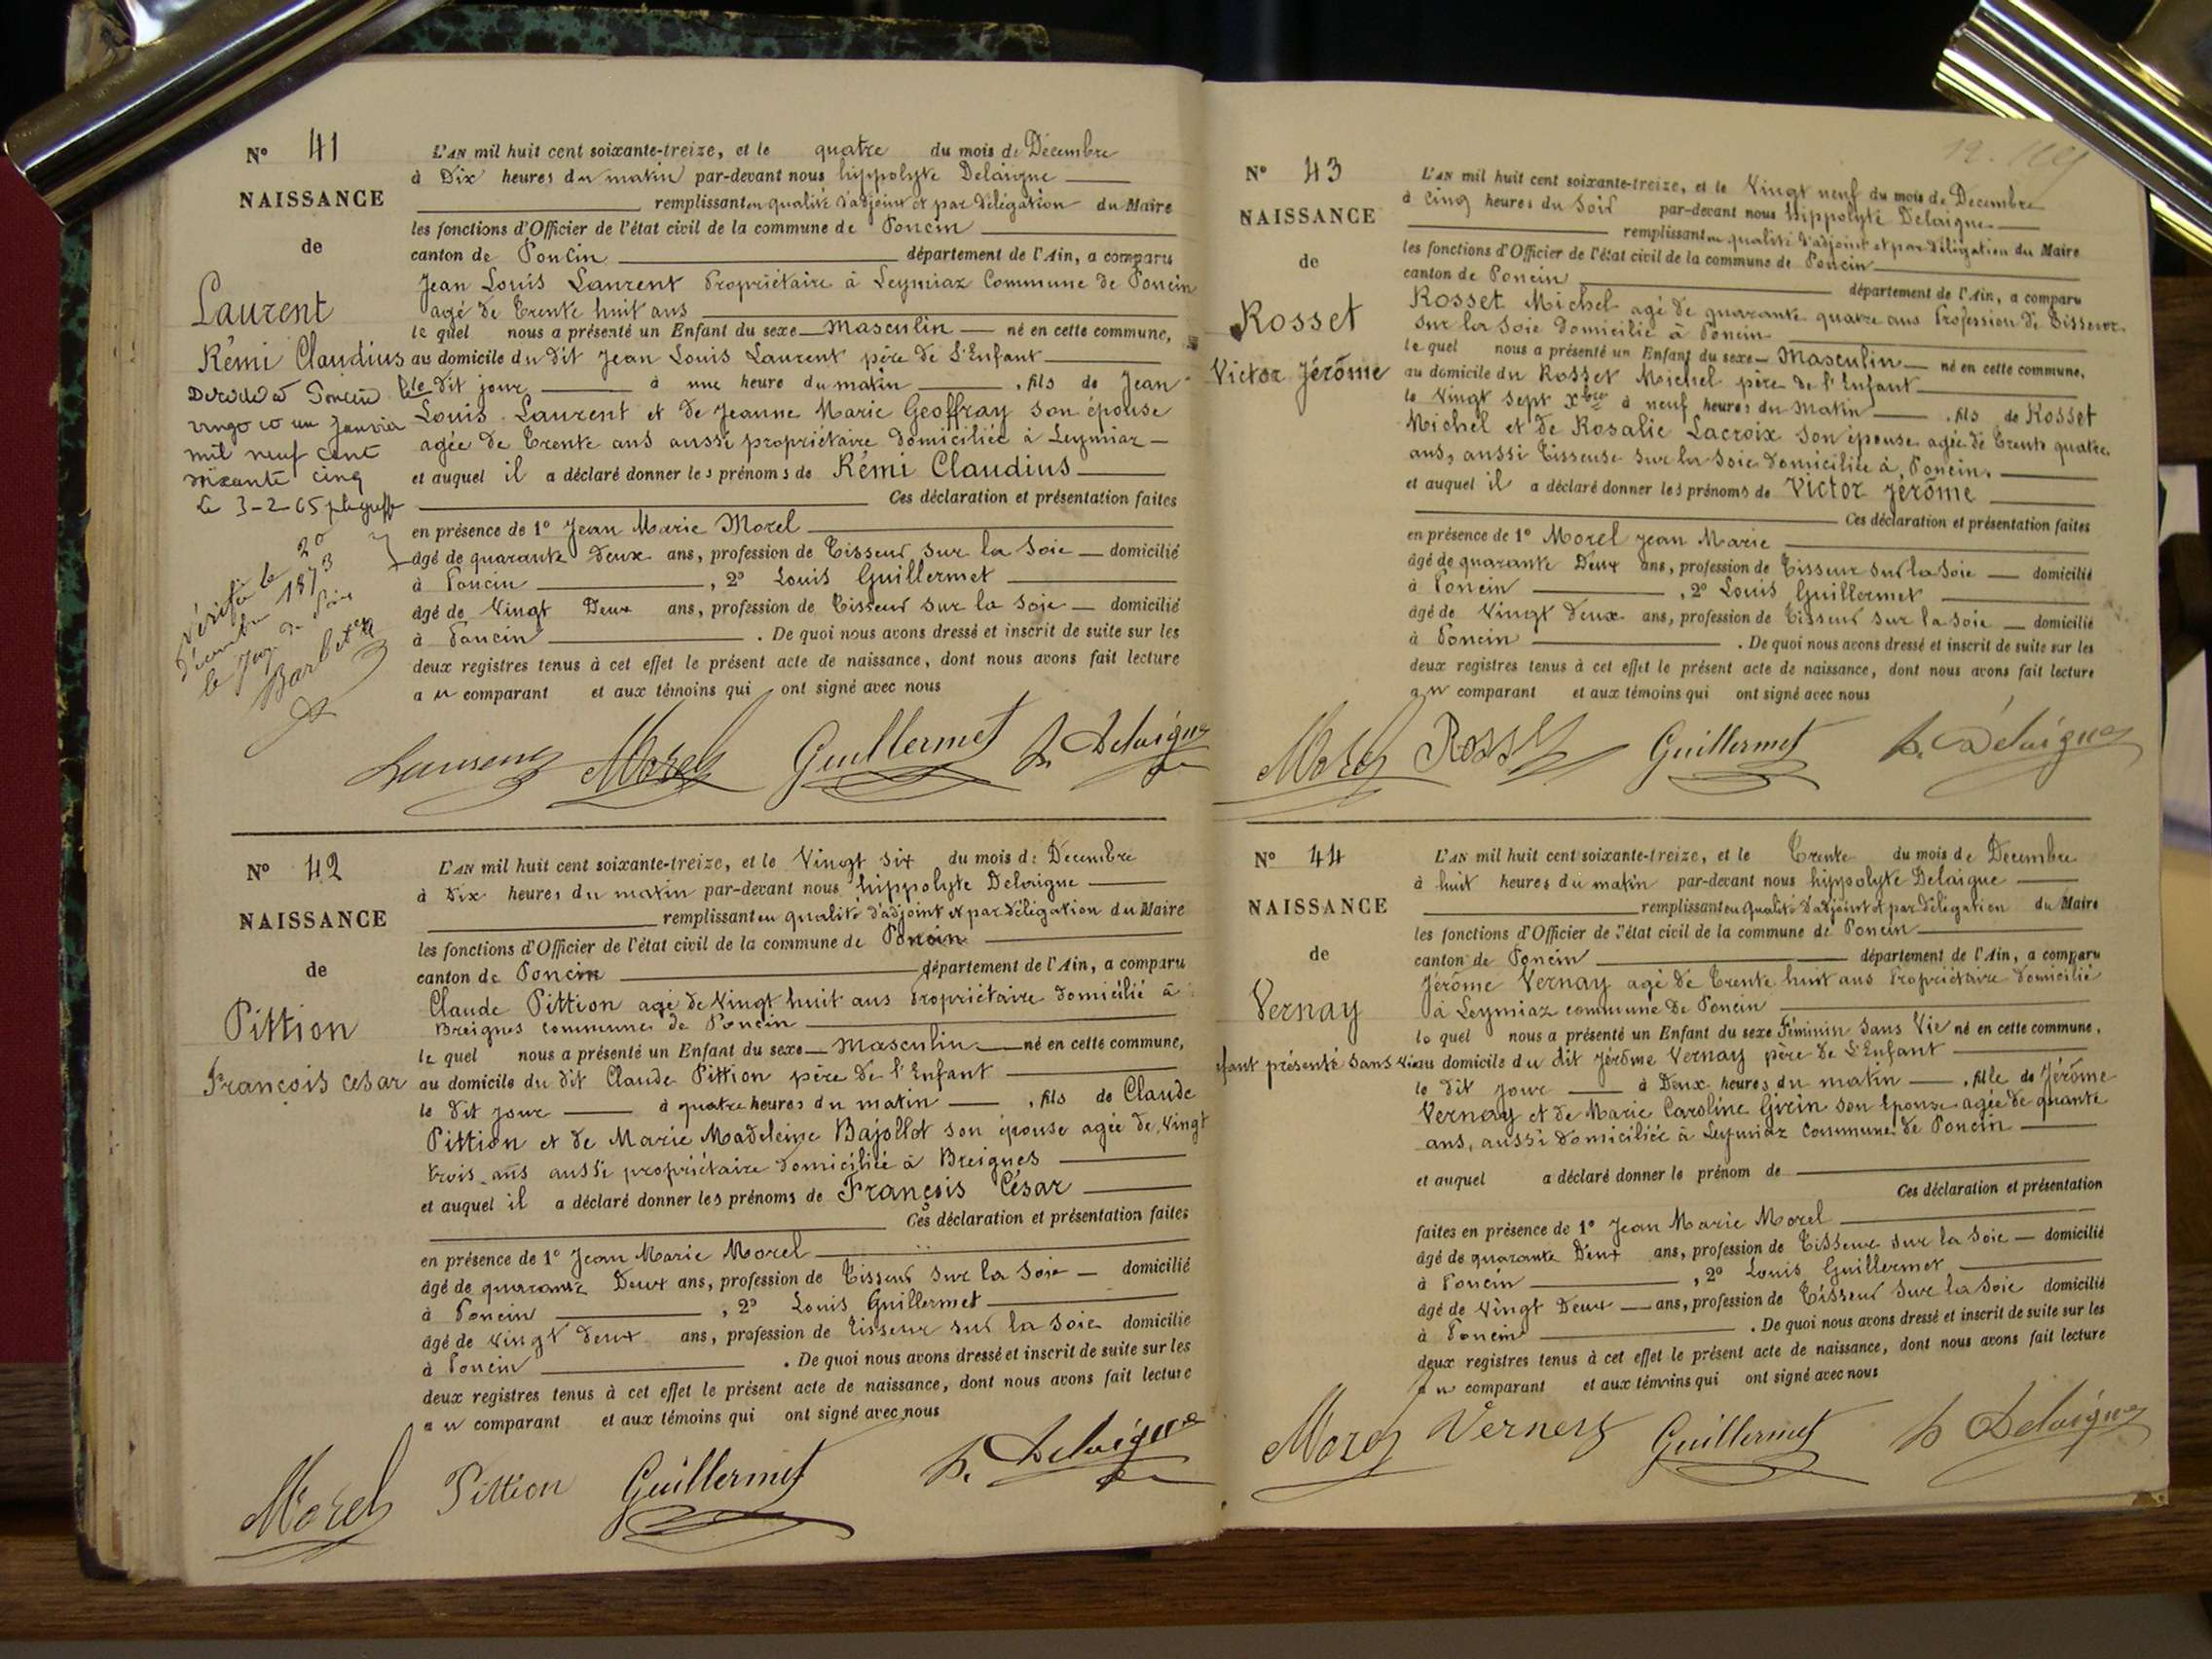 N° 41
NAISSANCE
de
Laurent
Rémi Claudius
Décédé à Poncin le
vingt et un Janvier
mil neuf cent
soixante cinq
Le 3-2-65
Vérifié le 20
Décembre 1873
le Juge de Paix
L'AN mil huit cent soixante-treize, et le quatre du mois de Décembre
à Dix heures du matin par-devant nous hippolyte Delaigue
remplissant en qualité d'adjoint et par délégation du Maire
les fonctions d'Officier de l'état civil de la commune de Poncin
canton de Poncin département de l'Ain, a comparu
Jean Louis Laurent Propriétaire à Leymiaz Commune de Poncin
agé de Trente huit ans
le quel nous a présenté un Enfant du sexe Masculin né en cette commune,
au domicile du dit Jean Louis Laurent père de L'Enfant
le dit jour à une heure du matin , fils de Jean
Louis Laurent et de Jeanne Marie Geoffray son épouse
agée de Trente ans aussi propriétaire domiciliée à Leymiaz
et auquel il a déclaré donner les prénoms de Rémi Claudius
Ces déclaration et présentation faites
en présence de 1° Jean Marie Morel
âgé de quarante Deux ans, profession de Tisseur sur la Soie domicilié
à Poncin , 2° Louis Guillermet
âgé de Vingt Deux ans, profession de Tisseur sur la Soie domicilié
à Poncin . De quoi nous avons dressé et inscrit de suite sur les
deux registres tenus à cet effet le présent acte de naissance, dont nous avons fait lecture
au comparant et aux témoins qui ont signé avec nous
Laurent Morel Guillermet h. Delaigue
N° 42
NAISSANCE
de
Pittion
François César
L'AN mil huit cent soixante-treize, et le Vingt six du mois de Décembre
à Dix heures du matin par-devant nous hippolyte Delaigue
remplissant en qualité d'adjoint et par délégation du Maire
les fonctions d'Officier de l'état civil de la commune de Poncin
canton de Poncin département de l'Ain, a comparu
Claude Pittion agé de Vingt huit ans Propriétaire domicilié à
Breignes commune de Poncin
le quel nous a présenté un Enfant du sexe Masculin né en cette commune,
au domicile du dit Claude Pittion père de l'Enfant
le dit jour à quatre heures du matin , fils de Claude
Pittion et de Marie Madeleine Bajollet son épouse agée de Vingt
trois ans aussi propriétaire domiciliée à Breignes
et auquel il a déclaré donner les prénoms de François César
Ces déclaration et présentation faites
en présence de 1° Jean Marie Morel
âgé de quarante Deux ans, profession de Tisseur sur la Soie domicilié
à Poncin , 2° Louis Guillermet
âgé de vingt deux ans, profession de Tisseur sur la Soie domicilié
à Poncin . De quoi nous avons dressé et inscrit de suite sur les
deux registres tenus à cet effet le présent acte de naissance, dont nous avons fait lecture
au comparant et aux témoins qui ont signé avec nous
Morel Pittion Guillermet h. Delaigue
N° 43
NAISSANCE
de
Rosset
Victor Jérôme
L'AN mil huit cent soixante-treize, et le Vingt neuf du mois de Décembre
à Cinq heures du Soir par-devant nous Hippolyte Delaigue
remplissant en qualité d'adjoint et par délégation du Maire
les fonctions d'Officier de l'état civil de la commune de Poncin
canton de Poncin département de l'Ain, a comparu
Rosset Michel agé de quarante quatre ans Profession de Tisseur
sur la Soie domicilié à Poncin
le quel nous a présenté un Enfant du sexe Masculin né en cette commune,
au domicile du Rosset Michel père de l'Enfant
le Vingt Sept Xbre à neuf heures du Matin , fils de Rosset
Michel et de Rosalie Lacroix son épouse agée de Trente quatre
ans, aussi Tisseuse sur la Soie domiciliée à Poncin.
et auquel il a déclaré donner les prénoms de Victor Jérôme
Ces déclaration et présentation faites
en présence de 1° Morel Jean Marie
âgé de quarante Deux ans, profession de Tisseur sur la Soie domicilié
à Poncin , 2° Louis Guillermet
âgé de Vingt deux ans, profession de Tisseur sur la Soie domicilié
à Poncin . De quoi nous avons dressé et inscrit de suite sur les
deux registres tenus à cet effet le présent acte de naissance, dont nous avons fait lecture
au comparant et aux témoins qui ont signé avec nous
Morel Rosset Guillermet h. Delaigue
N° 44
NAISSANCE
de
Vernay
enfant présenté sans vie
L'AN mil huit cent soixante-treize, et le Trente du mois de Décembre
à huit heures du matin par-devant nous hippolyte Delaigue
remplissant en qualité d'adjoint et par délégation du Maire
les fonctions d'Officier de l'état civil de la commune de Poncin
canton de Poncin département de l'Ain, a comparu
Jérôme Vernay agé de Trente huit ans Propriétaire domicilié
à Leymiaz commune de Poncin
le quel nous a présenté un Enfant du sexe Féminin Sans Vie né en cette commune,
au domicile du dit Jérôme Vernay père de L'Enfant
le dit jour à Deux heures du matin , fille de Jérôme
Vernay et de Marie Caroline Girin son épouse agée de quante
ans, aussi domiciliée à Leymiaz Commune de Poncin
et auquel a déclaré donner le prénom de
Ces déclaration et présentation
faites en présence de 1° Jean Marie Morel
âgé de quarante Deux ans, profession de Tisseur sur la Soie domicilié
à Poncin , 2° Louis Guillermet
âgé de Vingt Deux ans, profession de Tisseur sur la Soie domicilié
à Poncin . De quoi nous avons dressé et inscrit de suite sur les
deux registres tenus à cet effet le présent acte de naissance, dont nous avons fait lecture
au comparant et aux témoins qui ont signé avec nous
Morel Vernay Guillermet h Delaigue